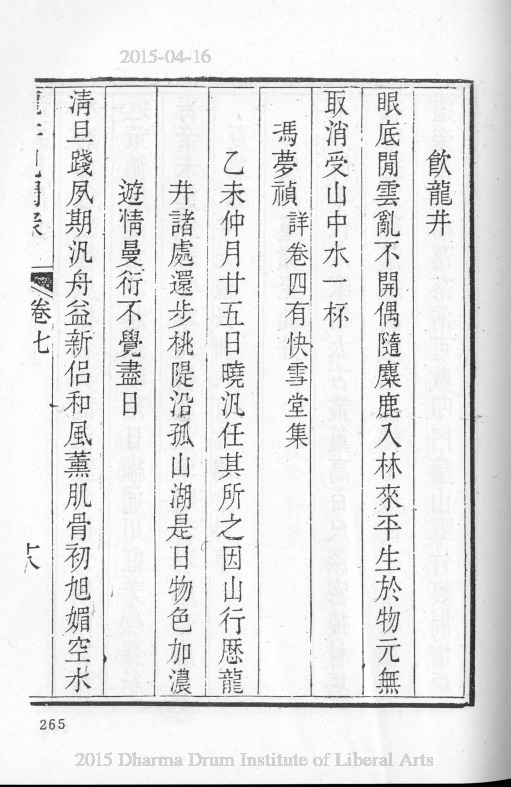 2015-04-16
飲龍井
眼底閒雲亂不開偶隨麋鹿入林來平生於物元無
取消受山中水一杯
馮夢禎 詳卷四有快雪堂集
乙未仲月廿五日曉汎任其所之因山行歷龍
井諸處還步桃隄沿孤山湖是日物色加濃
遊情曼衍不覺盡日
清旦踐夙期汎舟益新侶和風薰肌骨初旭媚空水
卷七
265
2015 Dharma Drum Institute of Liberal Arts